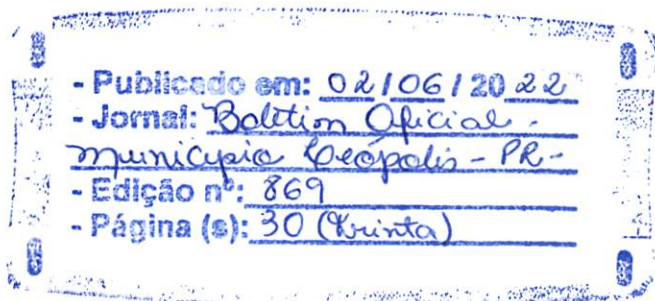 - Publicado em: 02/06/2022
- Jornal: Boletim Oficial -
município Leópolis - PR -
- Edição nº: 869
- Página (s): 30 (Trinta)